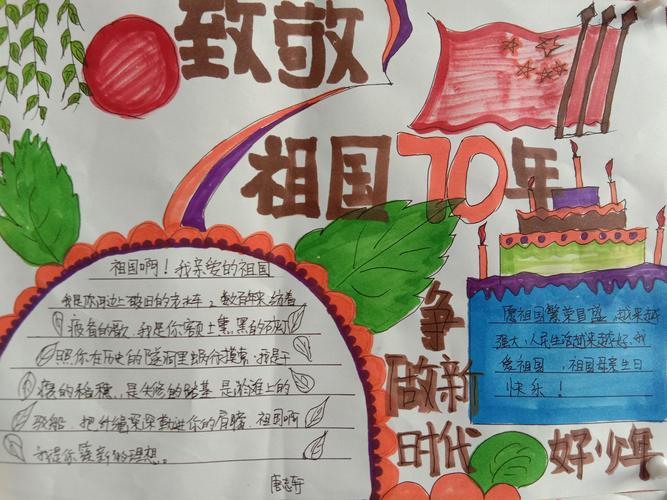 致敬
祖国70年
祖国啊！我亲爱的祖国
我是你河边上破旧的老水车，数百年来纺着
疲惫的歌，我是你额上熏黑的矿灯
照你在历史的隧洞里蜗行摸索，我是干
瘪的稻穗，是失修的路基 是淤滩上的
驳船 把纤绳深深勒进你的肩膊，祖国啊
我是你簇新的理想。
唐志轩
愿祖国繁荣昌盛 越来越
强大，人民生活越来越好，我
爱祖国 ，祖国母亲生日
快乐！
争
做新
时代
好少年